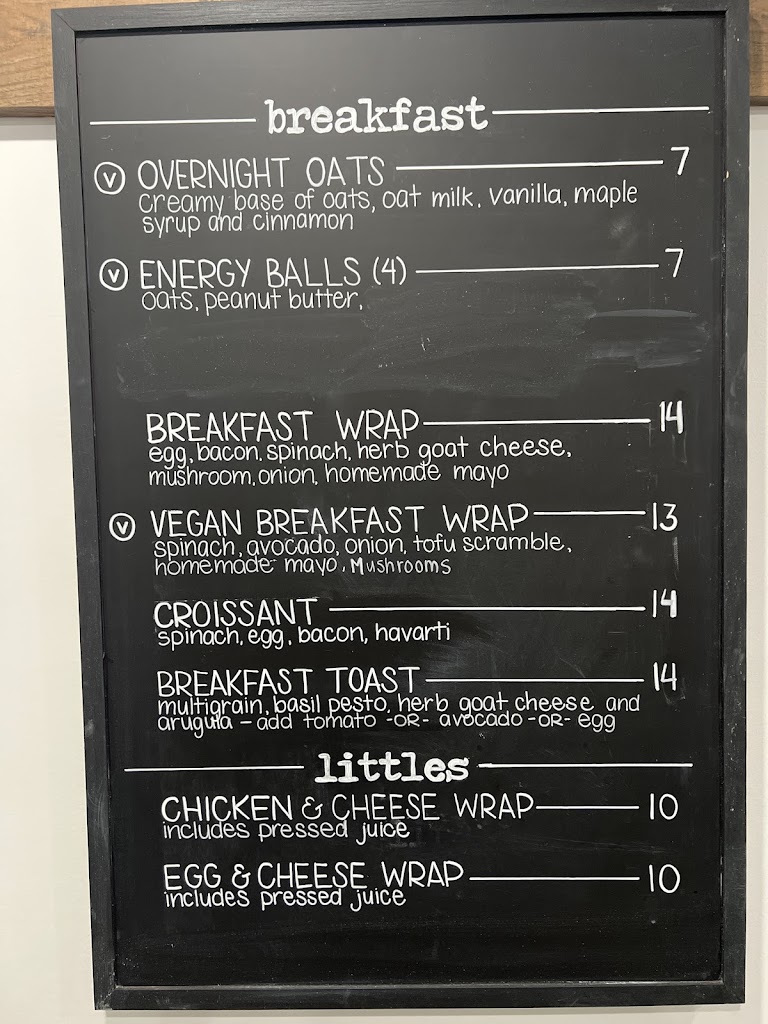 breakfast
V OVERNIGHT OATS 7
creamy base of oats, oat milk, vanilla, maple
syrup and cinnamon
V ENERGY BALLS (4) 7
oats, peanut butter,
BREAKFAST WRAP 14
egg, bacon, spinach, herb goat cheese,
mushroom, onion, homemade mayo
V VEGAN BREAKFAST WRAP 13
spinach, avocado, onion, tofu scramble,
homemade mayo, Mushrooms
CROISSANT 14
spinach, egg, bacon, havarti
BREAKFAST TOAST 14
multigrain, basil pesto, herb goat cheese and
arugula – add tomato -OR- avocado -OR- egg
littles
CHICKEN & CHEESE WRAP 10
includes pressed juice
EGG & CHEESE WRAP 10
includes pressed juice